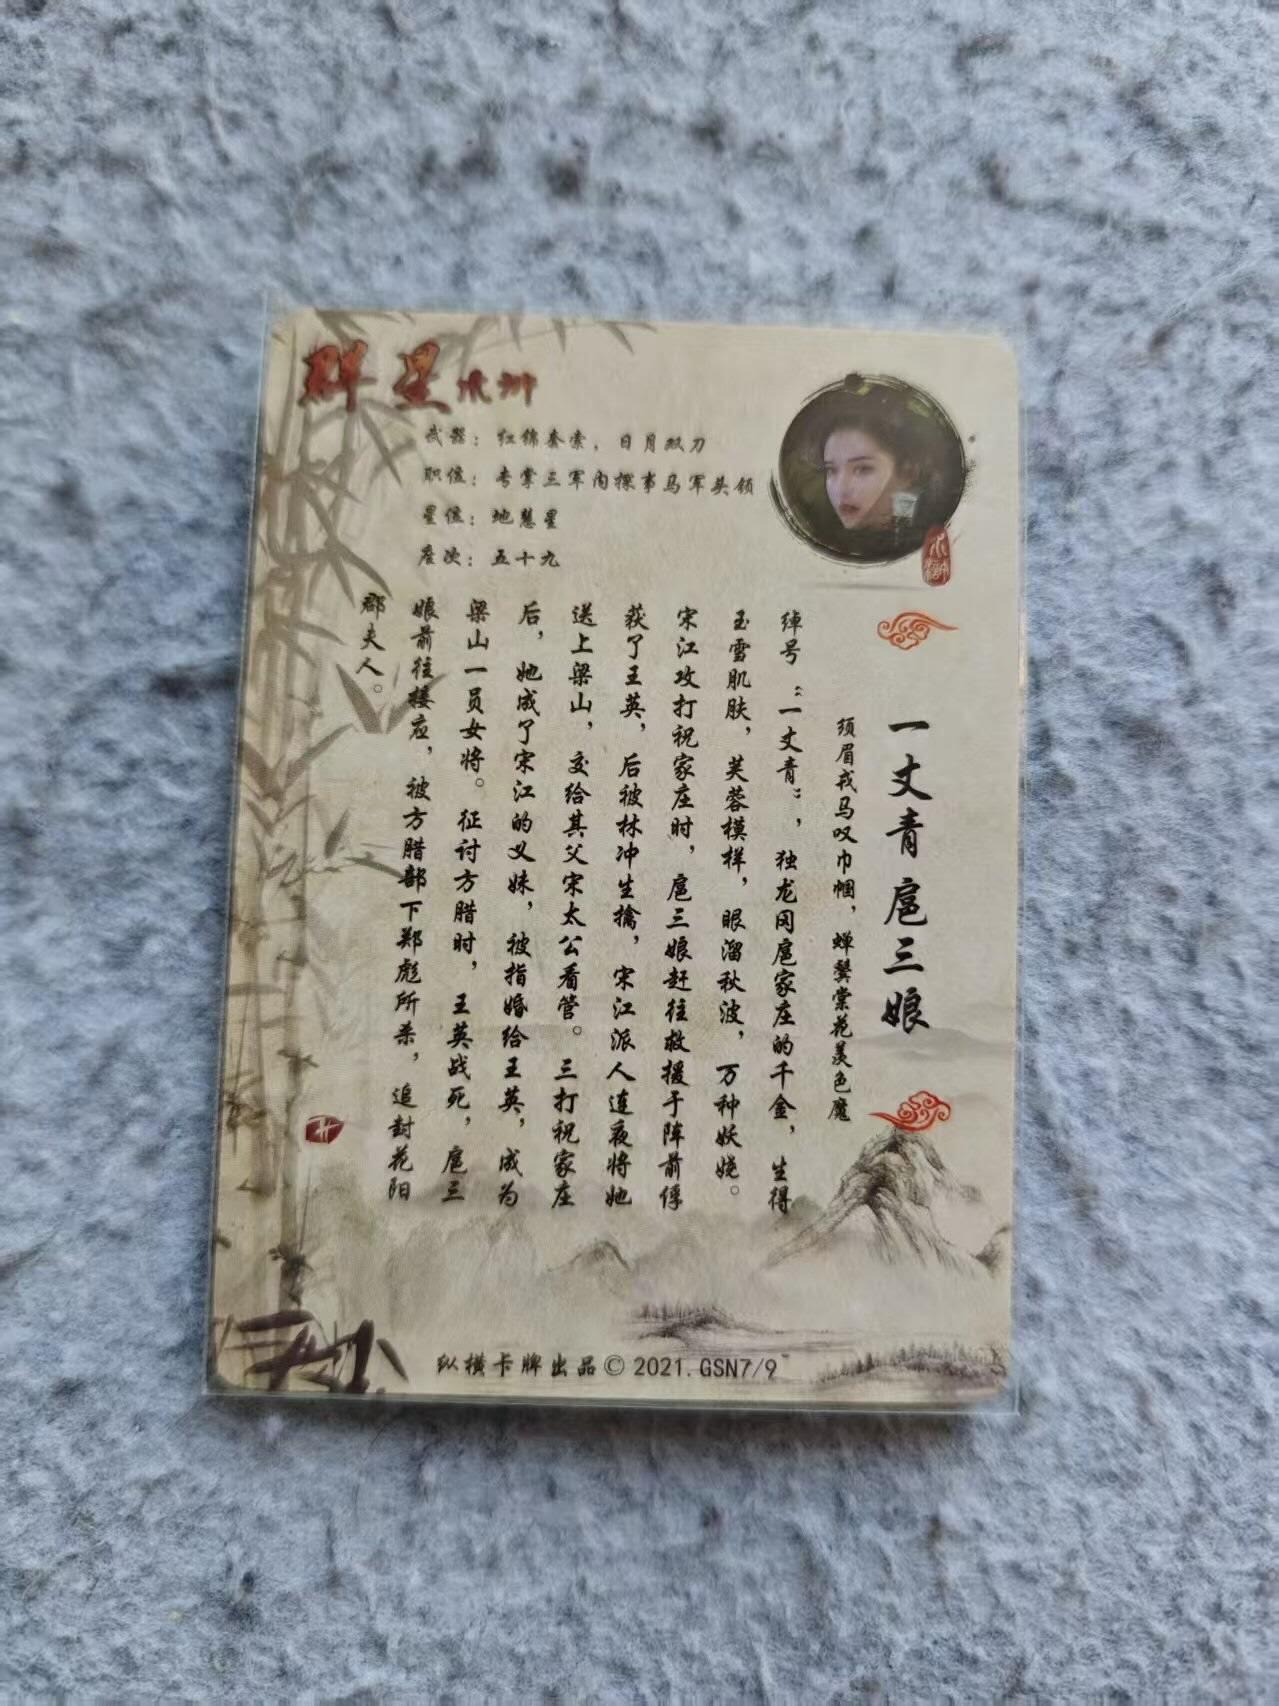 群星水浒
武器：红锦套索，日月双刀
职位：专掌三军内探事马军头领
星位：地慧星
座次：五十九
水浒
一丈青 扈三娘
须眉戎马叹巾帼，蝉鬓棠花羡色魔
绰号“一丈青”，独龙冈扈家庄的千金，生得
玉雪肌肤，芙蓉模样，眼溜秋波，万种妖娆。
宋江攻打祝家庄时，扈三娘赶往救援于阵前俘
获了王英，后被林冲生擒，宋江派人连夜将她
送上梁山，交给其父宋太公看管。三打祝家庄
后，她成了宋江的义妹，被指婚给王英，成为
梁山一员女将。征讨方腊时，王英战死，扈三
娘前往接应，被方腊部下郑彪所杀，追封花阳
郡夫人。
纵横卡牌出品© 2021.GSN7/9